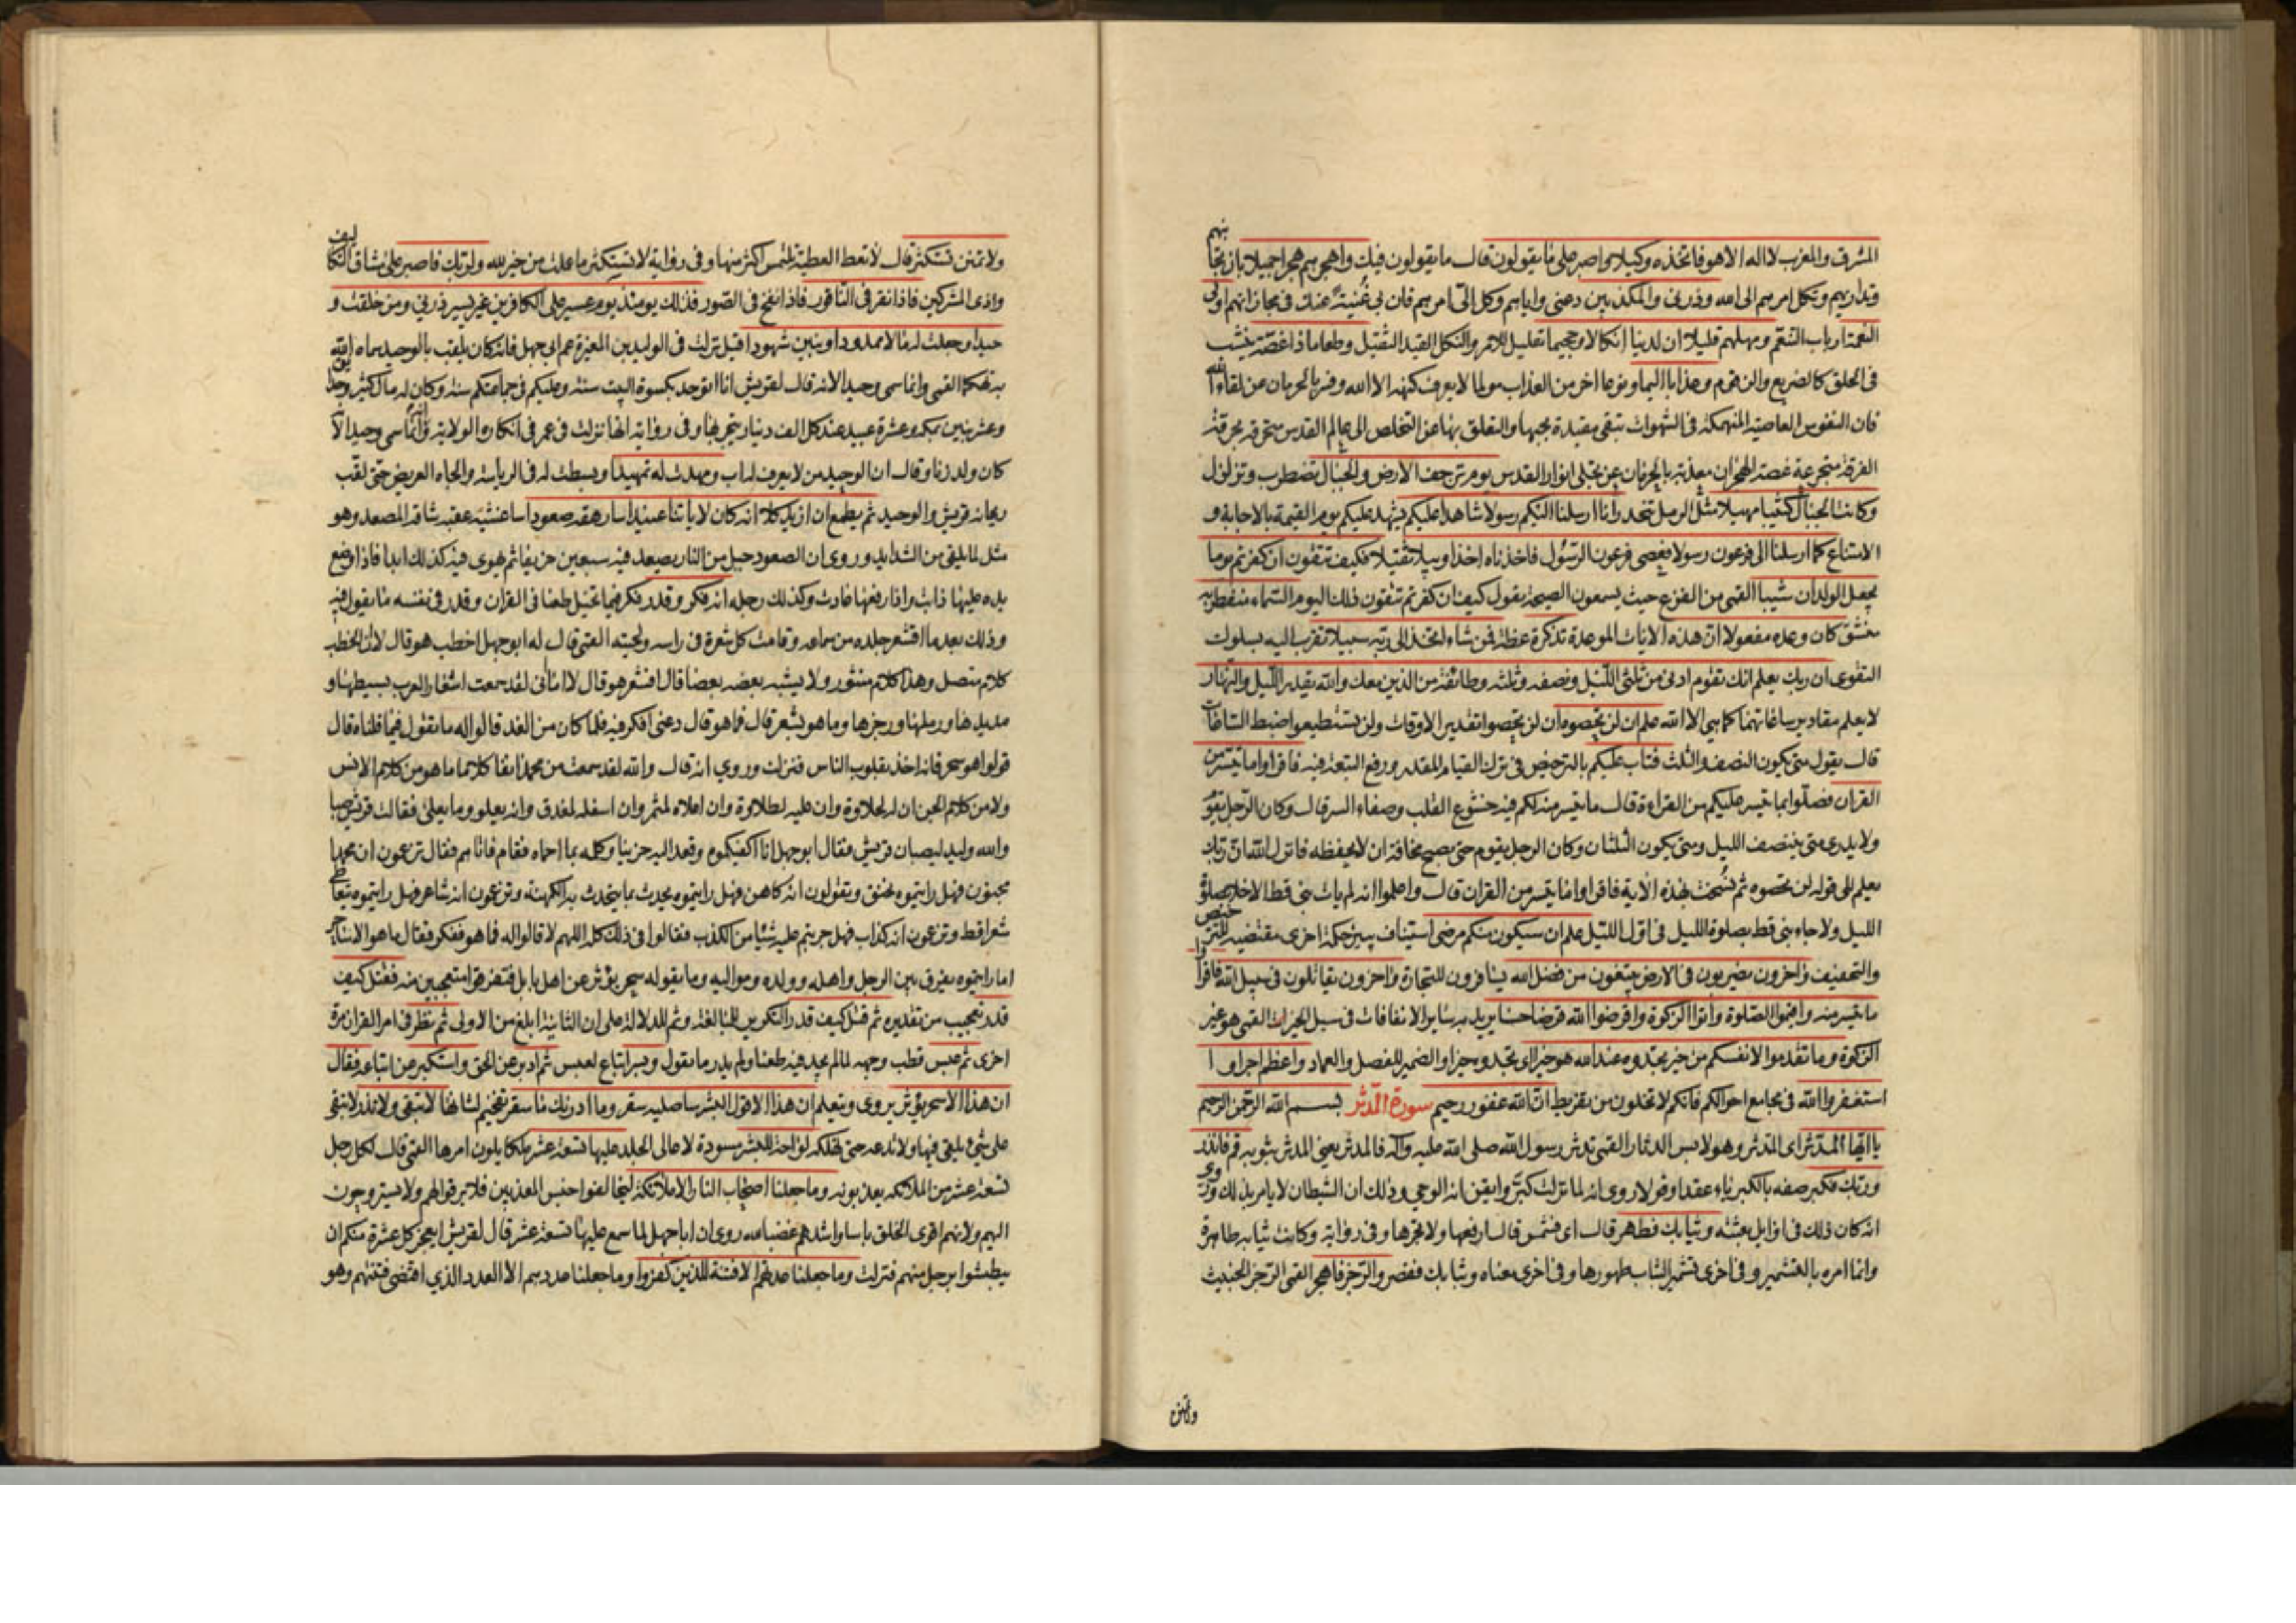 المشرق والمغرب لا اله الا هو فاتخذه وكيلا واصبر على ما يقولون قال ما يقولون فيك واهجرهم هجرا جميلا بان تجا
نبهم
وتداريهم وتكل امرهم الى الله وذرني والمكذبين دعني واياهم وكل الىّ امرهم فان بي غُنيةً عنك في مجازاتهم اولى
النعمة ارباب التنعّم ومهلهم قليلا ان لدينا انكالا وجحيما تعليل للامر والنكل القيد الثقيل وطعاما ذا غصّة ينشب
في الحلق كالضريع والزقوم وعذابا اليما ونوعا اخر من العذاب مولما لا يعرف كنهه الا الله وفسر بالحرمان عن لقاء الله
فان النفوس العاصية المنهمكة في الشهوات تبقى مقيدة بحبها والتعلق بها عن التخلص الى عالم القدس متحرقة بحرقة
الفرقة متجرعة غصة الهجران معذبة بالحرمان عن تجلي انوار القدس يوم ترجف الارض والجبال تضطرب وتزلزل
وكانت الجبال كثيبا مهيلا مثل الرمل تنحدر انا ارسلنا اليكم رسولا شاهدا عليكم يشهد عليكم يوم القيمة بالاجابة و
الامتناع كما ارسلنا الى فرعون رسولا فعصى فرعون الرّسُول فاخذناه اخذا وبيلا ثقيلا فكيف تتقون ان كفرتم يوما
يجعل الولدان شيبا القمي من الفزع حيث يسمعون الصيحة يقول كيف ان كفرتم تتقون ذلك اليوم السماء منفطر به
منشق كان وعده مفعولا انّ هذه الايات الموعدة تذكرة عظة فمن شاء اتخذ الى ربّه سبيلا تقرب اليه بسلوك
التقوى ان ربك يعلم انك تقوم ادنى من ثلثي الليل ونصفه وثلثه وطائفة من الذين معك والله يقدر الليل والنهار
لا يعلم مقادير ساعاتهما كما هي الا الله علم ان لن تحصوه ان لن تحصوا تقدير الاوقات ولن تستطيعوا ضبط الساعات
قال يقول متى يكون النصف والثلث فتاب عليكم بالترخيص في ترك القيام المقدر ورفع التبعة فيه فاقراوا ما تيسر من
القران فصلّوا بما تيسر عليكم من القراءة قال ما تيسر منه لكم فيه خشوع القلب وصفاء السر قال وكان الرّجل يقو
ولا يدري متى ينتصف الليل ومتى يكون الثلثان وكان الرجل يقوم حتى يصبح مخافة ان لا يحفظه فانزل الله انّ ربّك
يعلم الى قوله لن تحصوه ثم نُسخت بهذه الاية فاقراوا ما تيسر من القران قال واعلموا انه لم يات نبي قط الا خلا بصلوة
الليل ولا جاء نبي قط بصلوة الليل في اوّل الليل علم ان سيكون منكم مرضى استيناف يبين حكمة اخرى مقتضيه للترخيص
والتخفيف واخرون يضربون في الارض يبتغون من فضل الله يسافرون للتجارة واخرون يقاتلون في سبيل الله فاقراوا
ما تيسر منه واقيموا الصلوة واتوا الزكوة واقرضوا الله قرضا حسنا يريد به سائر الانفاقات في سبل الخيرات القمي هو غير
الزكوة وما تقدموا لانفسكم من خير تجدوه عند الله هو خيرا اى تجدوه خيرا والضمير للفصل والعماد واعظم اجرا و ا
استغفروا الله في مجامع احوالكم فانكم لا تخلون من تفريط انّ الله غفور رحيم سورة المدّثر بسم الله الرّحمن الرحيم
يا ايّها المدّثر اى المتدثر وهو لابس الدثار القمي تدثر رسول الله صلى الله عليه وآله فالمدثر يعني المدثر بثوبه قم فانذر
وربك فكبر صفه بالكبرياء عقدا وقولا روى انه لما نزلت كبَّر وايقن انه الوحي وذلك ان الشيطان لا يامر بذلك وروى
انه كان ذلك في اوايل بعثته وثيابك فطهر قال اى فشمر قال ارفعها ولا تجرها وفي رواية وكانت ثيابه طاهرة
وانما امره بالتشمير وفي اخرى تشمير الثياب طهور لها وفي اخرى معناه وثيابك فقصر والرّجز فاهجر القمي الرّجز الخبيث
وتمنن
ولا تمنن تستكثر قال لا تعط العطية تلتمس اكثر منها وفي رواية لا تستكثر ما عملت من خير لله ولربّك فاصبر على مشاق التكا
ليف
واذى المشركين فاذا نقر في الناقور فاذا نفخ في الصّور فذلك يومئذ يوم عسير على الكافرين غير يسير ذرني ومن خلقت و
حيدا وجعلت له مالا ممدودا وبنين شهودا قيل نزلت في الوليد بن المغيرة عم ابي جهل فانه كان يلقب بالوحيد سماه الله
به تهكما القمي وانما سمي وحيدا لانه قال لقريش انا اتوحد بكسوة البيت سنة وعليكم في جماعتكم سنة وكان له مال كثير وحدايق
وعشر بنين بمكة وعشرة عبيد عند كل الف دينار يتجر بها وفي رواية انها نزلت في عمر في انكاره الولاية وانه انما سمي وحيدا لا
كان ولد زنا وقال ان الوحيد من لا يعرف له اب ومهدت له تمهيدا وبسطت له في الرياسة والجاه العريض حتى لقب
ريحانة قريش والوحيد ثم يطمع ان ازيد كلا انه كان لاياتنا عنيدا سارهقه صعودا ساغشيه عقبة شاقة المصعد وهو
مثل لما يلقى من الشدايد وروى ان الصعود جبل من النار يصعد فيه سبعين خريفا ثم يهوى فيه كذلك ابدا فاذا وضع
يده عليها ذابت واذا رفعها عادت وكذلك رجله انه فكر وقدر فكر فيما تخيل طعنا في القران وقدر في نفسه ما يقول فيه
وذلك بعد ما اقشعر جلده من سماعه وقامت كل شعرة في راسه ولحيته القمي قال له ابوجهل اخطب هو قال لا ان الخطب
كلام متصل وهذا كلام منثور ولا يشبه بعضه بعضا قال افشعر هو قال لا اما اني لقد سمعت اشعار العرب بسيطها و
مديدها ورملها ورجزها وما هو بشعر قال فما هو قال دعني افكر فيه فلما كان من الغد قالوا له ما تقول فيما قلناه قال
قولوا هو سحر فانه اخذ بقلوب الناس فنزلت وروي انه قال والله لقد سمعت من محمد انفا كلاما ما هو من كلام الانس
ولا من كلام الجن ان له لحلاوة وان عليه لطلاوة وان اعلاه لمثمر وان اسفله لمغدق وانه يعلو وما يعلى فقالت قريش صبا
والله وليد ليصبان قريش فقال ابوجهل انا اكفيكموه وقعد اليه حزينا وكلمه بما احماه فقام فاتاهم فقال تزعمون ان محمدا
مجنون فهل رايتموه يخنق وتقولون انه كاهن فهل رايتموه يحدث بما يتحدث به الكهنة وتزعمون انه شاعر فهل رايتموه يتعاطى
شعرا قط وتزعمون انه كذاب فهل جربتم عليه شيئا من الكذب فقالوا في ذلك كله اللهم لا قالوا له فما هو ففكر فقال ما هو الا ساحر
اما رايتموه يفرق بين الرجل واهله وولده ومواليه وما يقوله سحر يؤثر عن اهل بابل فتفرقوا متعجبين منه فقتل كيف
قدر تعجيب من تقديره ثم قتل كيف قدر التكرير للمبالغة وثم للدلالة على ان الثانية ابلغ من الاولى ثم نظر في امر القران مرة
اخرى ثم عبس قطب وجهه لما لم يجد فيه طعنا ولم يدر ما يقول وبسر اتباع لعبس ثم ادبر عن الحق واستكبر عن اتباعه فقال
ان هذا الا سحر يؤثر يروى ويتعلم ان هذا الا قول البشر ساصليه سقر وما ادريك ما سقر تفخيم لشانها لا تبقي ولا تذر لا تبقي
على شئ يلقى فيها ولا تدعه حتى تهلكه لواحة للبشر مسودة لاعالي الجلد عليها تسعة عشر ملكا يلون امرها القمي قال لكل رجل
تسعة عشر من الملائكة يعذبونه وما جعلنا اصحاب النار الا ملائكة ليخالفوا جنس المعذبين فلا يرقوا لهم ولا يستروحون
اليهم ولانهم اقوى الخلق باسا واشدهم غضبا لله روى ان ابا جهل لما سمع عليها تسعة عشر قال لقريش ايعجز كل عشرة منكم ان
يبطشوا برجل منهم فنزلت وما جعلنا عدتهم الا فتنة للذين كفروا وما جعلنا عددهم الا العدد الذي اقتضى فتنتهم وهو